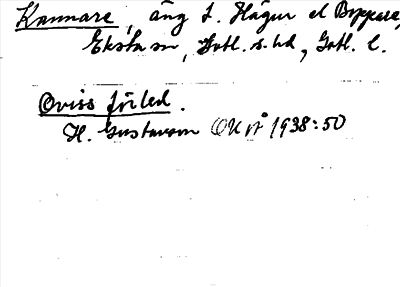 Kannare, äng t. Hägur el Boppare,
Eksta sn, Gotl. s. hd, Gotl. l.
Oviss förled.
H. Gustavson OKvÅ 1938:50